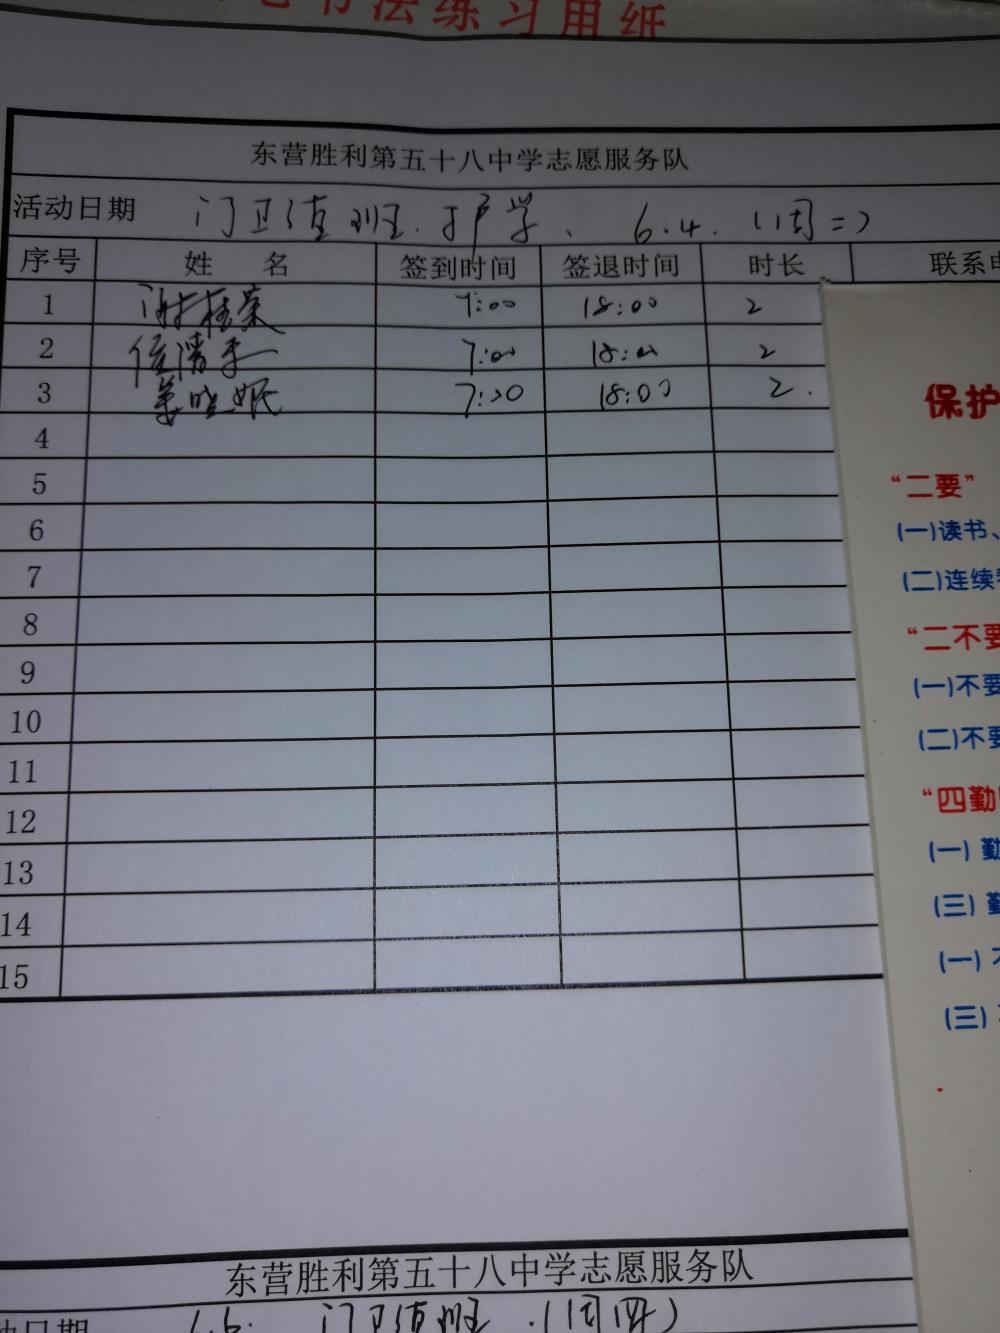 书法练习用纸
东营胜利第五十八中学志愿服务队
活动日期 门卫值班.护学、 6.4.(周二)
序号 姓 名 签到时间 签退时间 时长 联系电
1 谢桂荣 7:00 18:00 2
2 7:00 18:00 2
3 7:20 18:00 2.
4
5
6
7
8
9
10
11
12
13
14
15
保护
“二要”
(一)读书、
(二)连续
“二不要
(一)不要
(二)不要
“四勤
(一) 勤
(三) 勤
(一) 不
(三)
东营胜利第五十八中学志愿服务队
动日期 6.6. 门卫值班 .(周四)